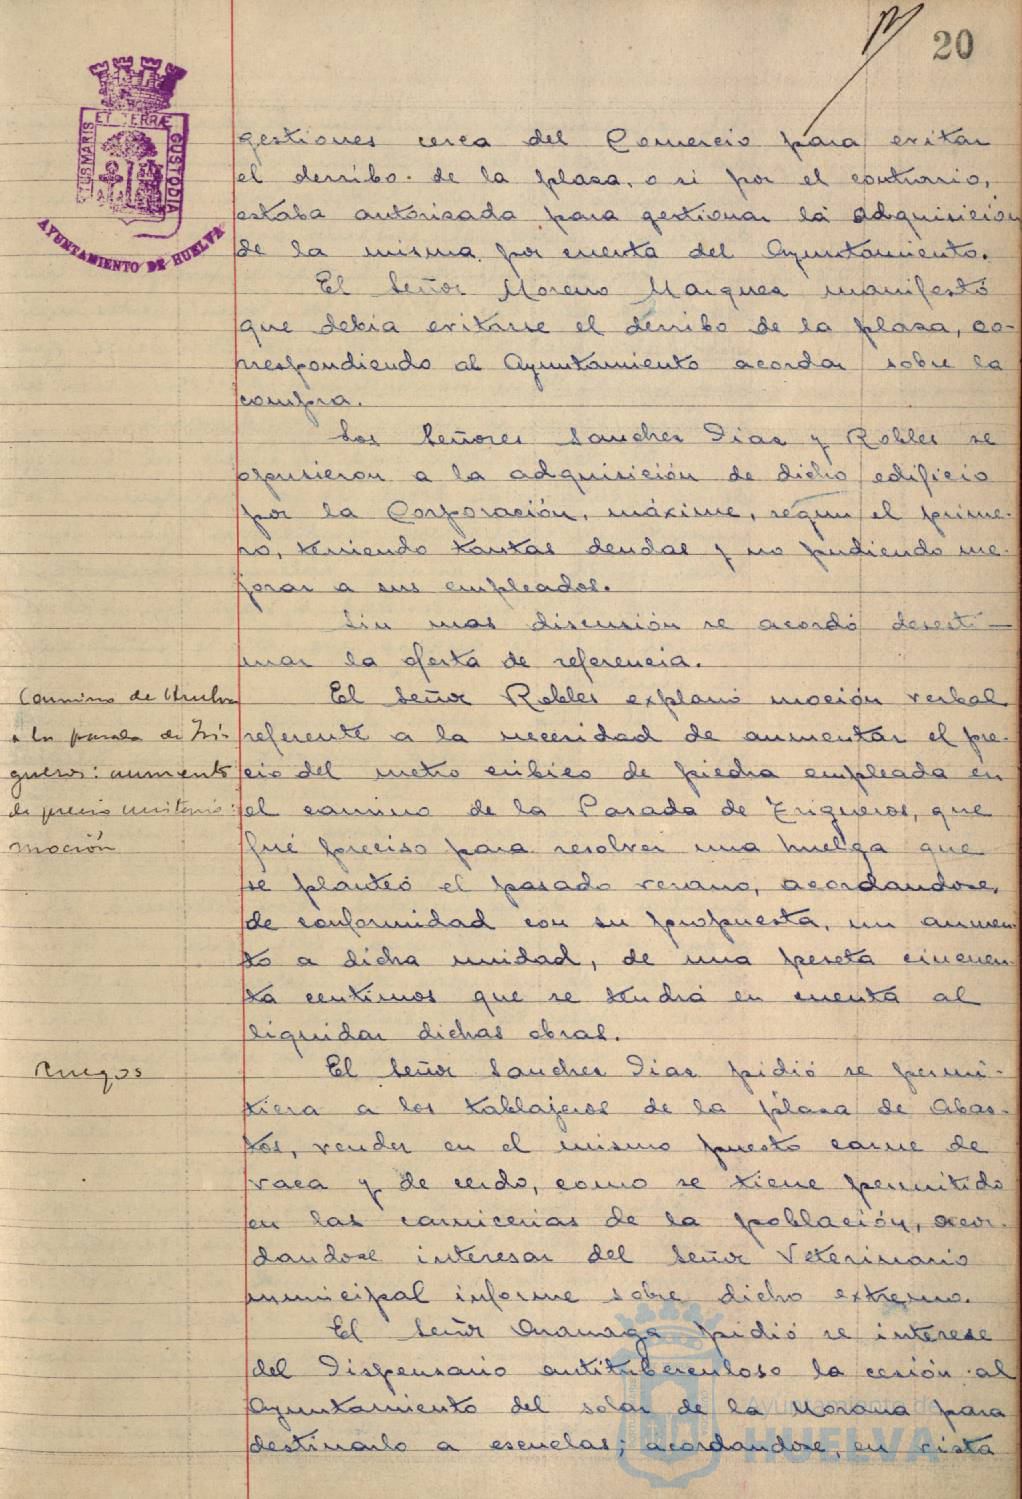 20
PORTUS MARIS ET TERRÆ CUSTODIA
AYUNTAMIENTO DE HUELVA
gestiones cerca del Comercio para evitar
el derribo de la plaza, o si por el contrario,
estaba autorizada para gestionar la adquisicion
de la misma por cuenta del Ayuntamiento.
El Señor Moreno Marquez manifestó
que debia evitarse el derribo de la plaza, co-
rrespondiendo al Ayuntamiento acordar sobre la
compra.
Los Señores Sanchez Diaz y Robles se
opusieron a la adquisición de dicho edificio
por la Corporación, máxime, segun el prime-
ro, teniendo tantas deudas y no pudiendo me-
jorar a sus empleados.
Sin mas discusión se acordó desesti-
mar la oferta de referencia.
Camino de Huelva
a la parada de Tri-
gueros: aumento
de precio unitario:
moción
El Señor Robles explanó moción verbal
referente a la necesidad de aumentar el pre-
cio del metro cúbico de piedra empleada en
el camino de la Parada de Trigueros, que
fué preciso para resolver una huelga que
se planteó el pasado verano, acordandose,
de conformidad con su propuesta, un aumen-
to a dicha unidad, de una peseta cincuen-
ta centimos que se tendrá en cuenta al
liquidar dichas obras.
Ruegos
El Señor Sanchez Diaz pidió se permi-
tiera a los tablajeros de la plaza de Abas-
tos, vender en el mismo puesto carne de
vaca y de cerdo, como se tiene permitido
en las carnicerias de la población, acor-
dandose interesar del Señor Veterinario
municipal informe sobre dicho extremo.
El Señor Aramaga pidió se interese
del Dispensario antituberculoso la cesión al
Ayuntamiento del solar de la Morana para
destinarlo a escuelas; acordandose, en vista
Ayuntamiento de
HUELVA